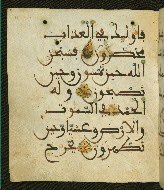 فأولئك في العذاب
محضرون فسبحن
الله حين تمسون وحين
تصبحون وله
الحمد في السموت
والأرض وعشيا وحين
تظهرون يخرج